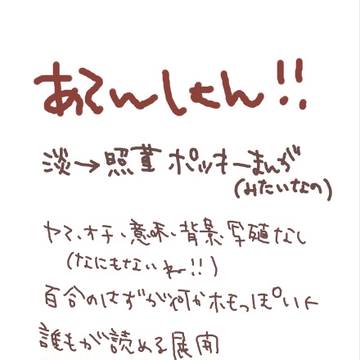 あてんしょん!!
淡→照菫 ポッキーまんが
(みたいなの)
ヤマ、オチ、意味、背景、写植なし
(なにもないねー!!)
百合のはずが何かホモっぽい←
誰もが読める展開